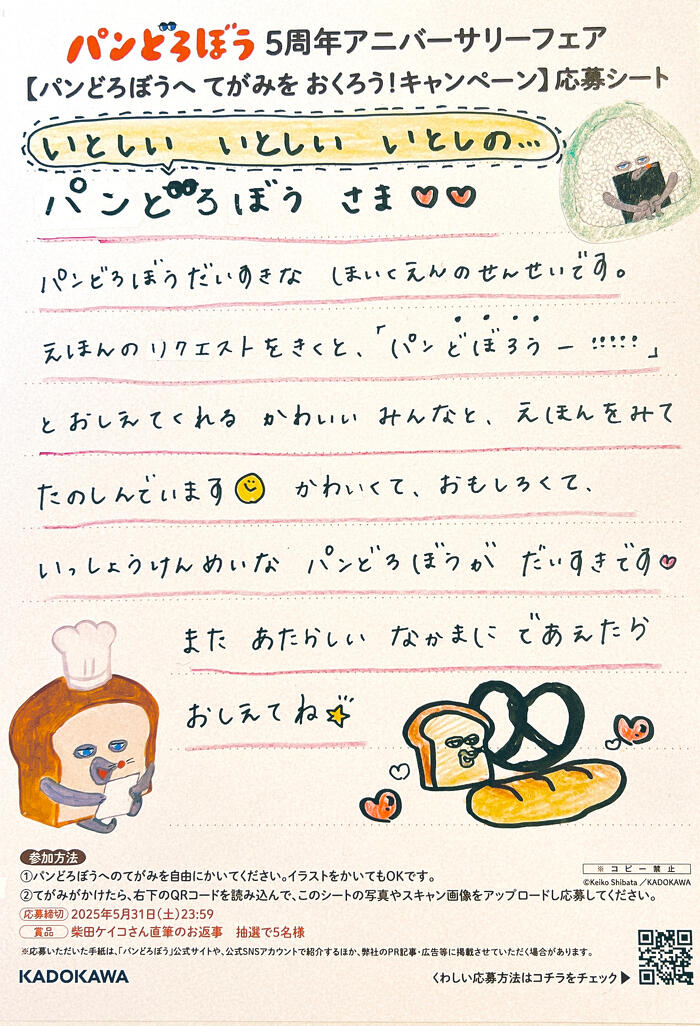 パンどろぼう 5周年アニバーサリーフェア
【パンどろぼうへ てがみを おくろう！キャンペーン】応募シート
いとしい いとしい いとしの…
パンどろぼう さま
パンどろぼうだいすきな ほいくえんのせんせいです。
えほんのリクエストをきくと、「パンどぼろうー!!!!!」
とおしえてくれる かわいい みんなと、えほんをみて
たのしんでいます かわいくて、おもしろくて、
いっしょうけんめいな パンどろぼうが だいすきです
また あたらしい なかまに であえたら
おしえてね
参加方法
①パンどろぼうへのてがみを自由にかいてください。イラストをかいてもOKです。
②てがみがかけたら、右下のQRコードを読み込んで、このシートの写真やスキャン画像をアップロードし応募してください。
※コピー禁止
©Keiko Shibata／KADOKAWA
応募締切 2025年5月31日(土)23:59
賞品 柴田ケイコさん直筆のお返事 抽選で5名様
※応募いただいた手紙は、「パンどろぼう」公式サイトや、公式SNSアカウントで紹介するほか、弊社のPR記事・広告等に掲載させていただく場合があります。
KADOKAWA
くわしい応募方法はコチラをチェック▶